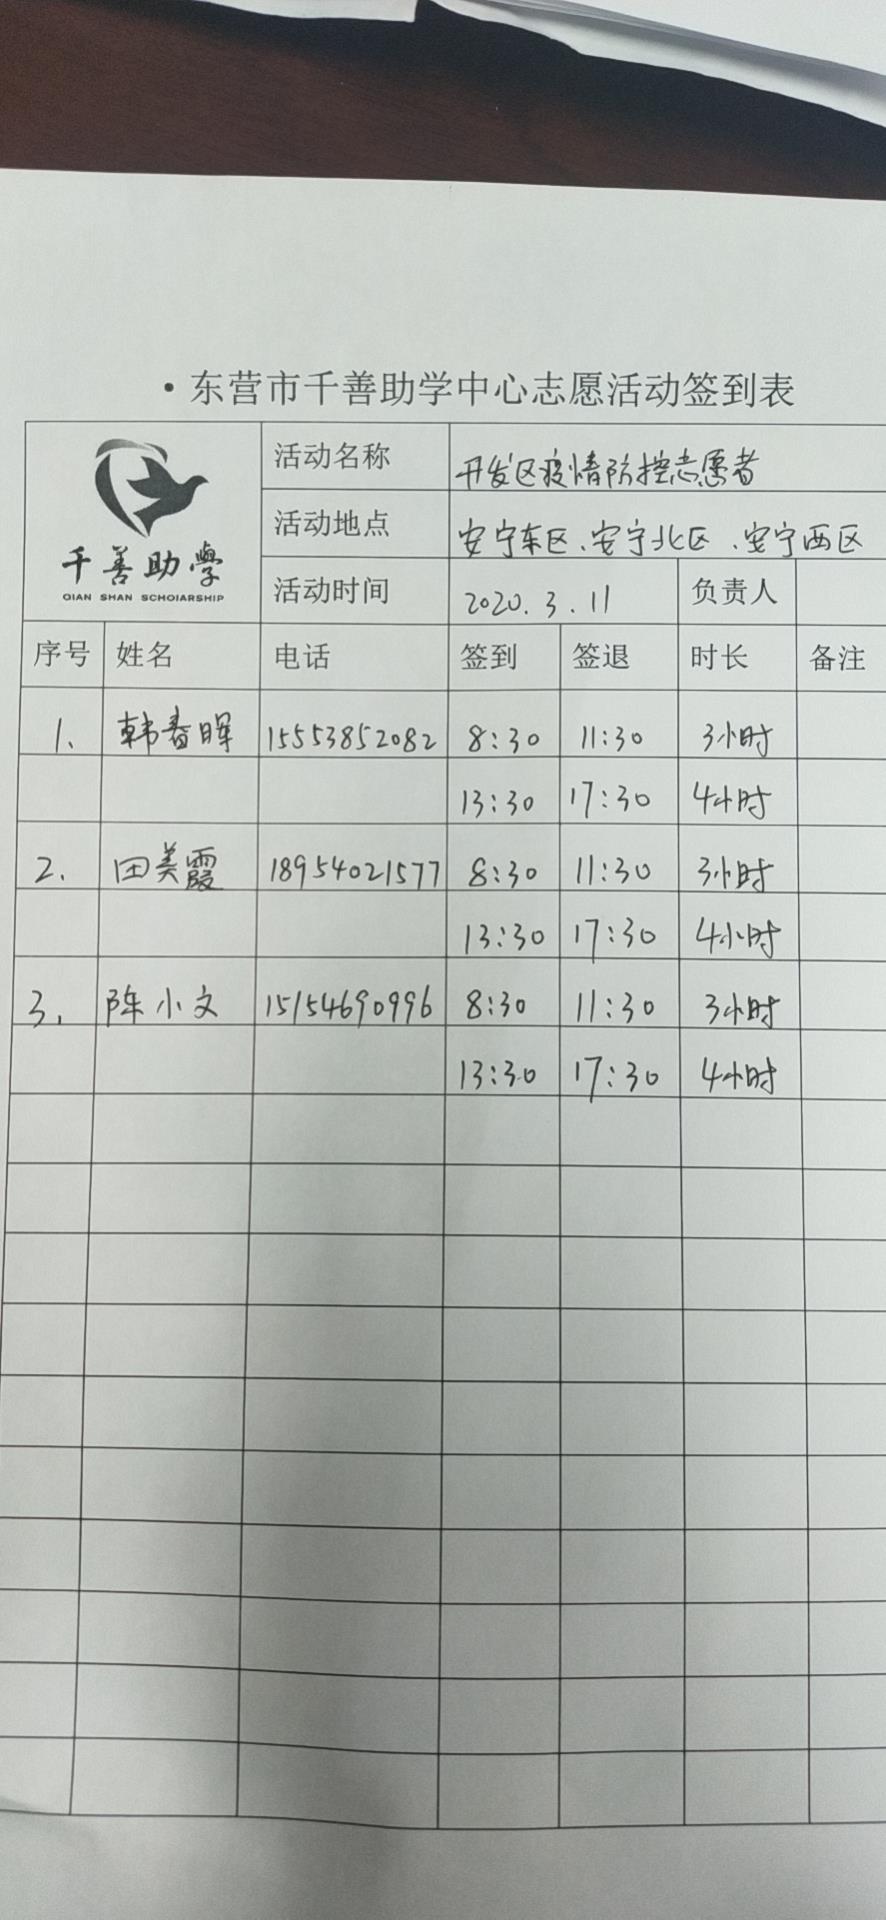 ·东营市千善助学中心志愿活动签到表
千善助學
QIAN SHAN SCHOIARSHIP
活动名称 开发区疫情防控志愿者
活动地点 安宁东区、安宁北区、安宁西区
活动时间 2020.3.11 负责人
序号 姓名 电话 签到 签退 时长 备注
1、 韩春晖 15553852082 8:30 11:30 3小时
13:30 17:30 4小时
2. 田美霞 18954021577 8:30 11:30 3小时
13:30 17:30 4小时
3. 陈小文 15154690996 8:30 11:30 3小时
13:30 17:30 4小时